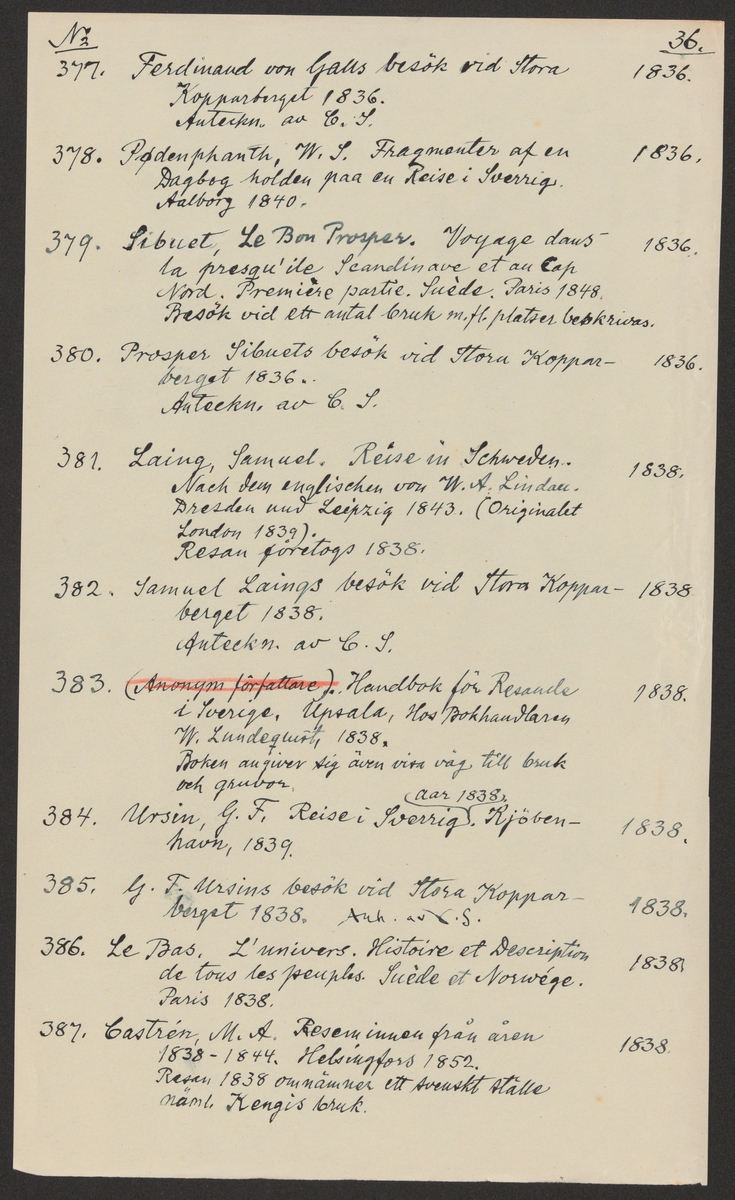 No 36.
377. Ferdinand von Galls besök vid Stora 1836.
Kopparberget 1836.
Anteckn. av C. S.
378. Pødenphanth, W. S. Fragmenter af en 1836.
Dagbog holden paa en Reise i Sverrig.
Aalborg 1840.
379. Sibuet, Le Bon Prosper. Voyage dans 1836.
la presqu'ile Scandinave et au Cap
Nord. Première partie. Suède. Paris 1848.
Besök vid ett antal bruk m.fl. platser beskrivas.
380. Prosper Sibuets besök vid Stora Koppar- 1836.
berget 1836.
Anteckn. av C. S.
381. Laing, Samuel. Reise in Schweden. 1838.
Nach dem englischen von W. A. Lindau.
Dresden und Leipzig 1843. (Originalet
London 1839).
Resan företogs 1838.
382. Samuel Laings besök vid Stora Koppar- 1838
berget 1838.
Anteckn. av C. S.
383. (Anonym författare). Handbok för Resande 1838.
i Sverige. Upsala, Hos Bokhandlaren
W. Lundequist, 1838.
Boken angiver sig även visa väg till bruk
och gruvor.
(aar 1838).
384. Ursin, G. F. Reise i Sverrig. Kjöben- 1838.
havn, 1839.
385. G. F. Ursins besök vid Stora Koppar- 1838.
berget 1838. Anh. av C. S.
386. Le Bas, L'univers. Histoire et Description 1838
de tous les peuples. Suède et Norwége.
Paris 1838.
387. Castrén, M. A. Reseminnen från åren 1838
1838-1844. Helsingfors 1852.
Resan 1838 omnämner ett svenskt ställe
näml. Kengis bruk.